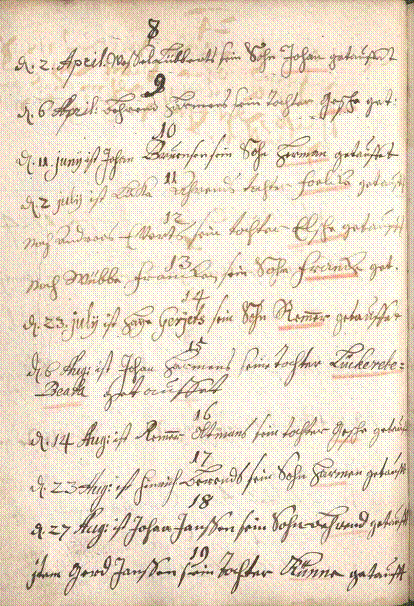 8
d. 2. April. Wessel Lübberts sein Sohn Johan getaufft
9
d. 6 April. Behrend Harmens sein tochter Gesche get.
10
d. 11. juny ist Johan sein Sohn Herman getauffet
11
d. 2 july ist Behrends tochter getaufft
12
noch Andreas Everts sein tochter Elsche getaufft
13
noch Wübbe Francken sein Sohn Franck get.
14
d. 23. july ist Haye Gerjets sein Sohn Remmer getauffet
15
d. 6 Aug: ist Johan Harmens sein tochter Lückerete-
Beata getauffet
16
d. 14 Aug: ist Remmer Oltmans sein tochter Gesche getauft
17
d. 23 Aug: ist Hinrich Berends sein Sohn Harmen getaufft
18
d. 27 Aug: ist Johan Janssen sein Sohn Behrend getaufft
19
jtem Gerd Janssen sein tochter Künne getaufft